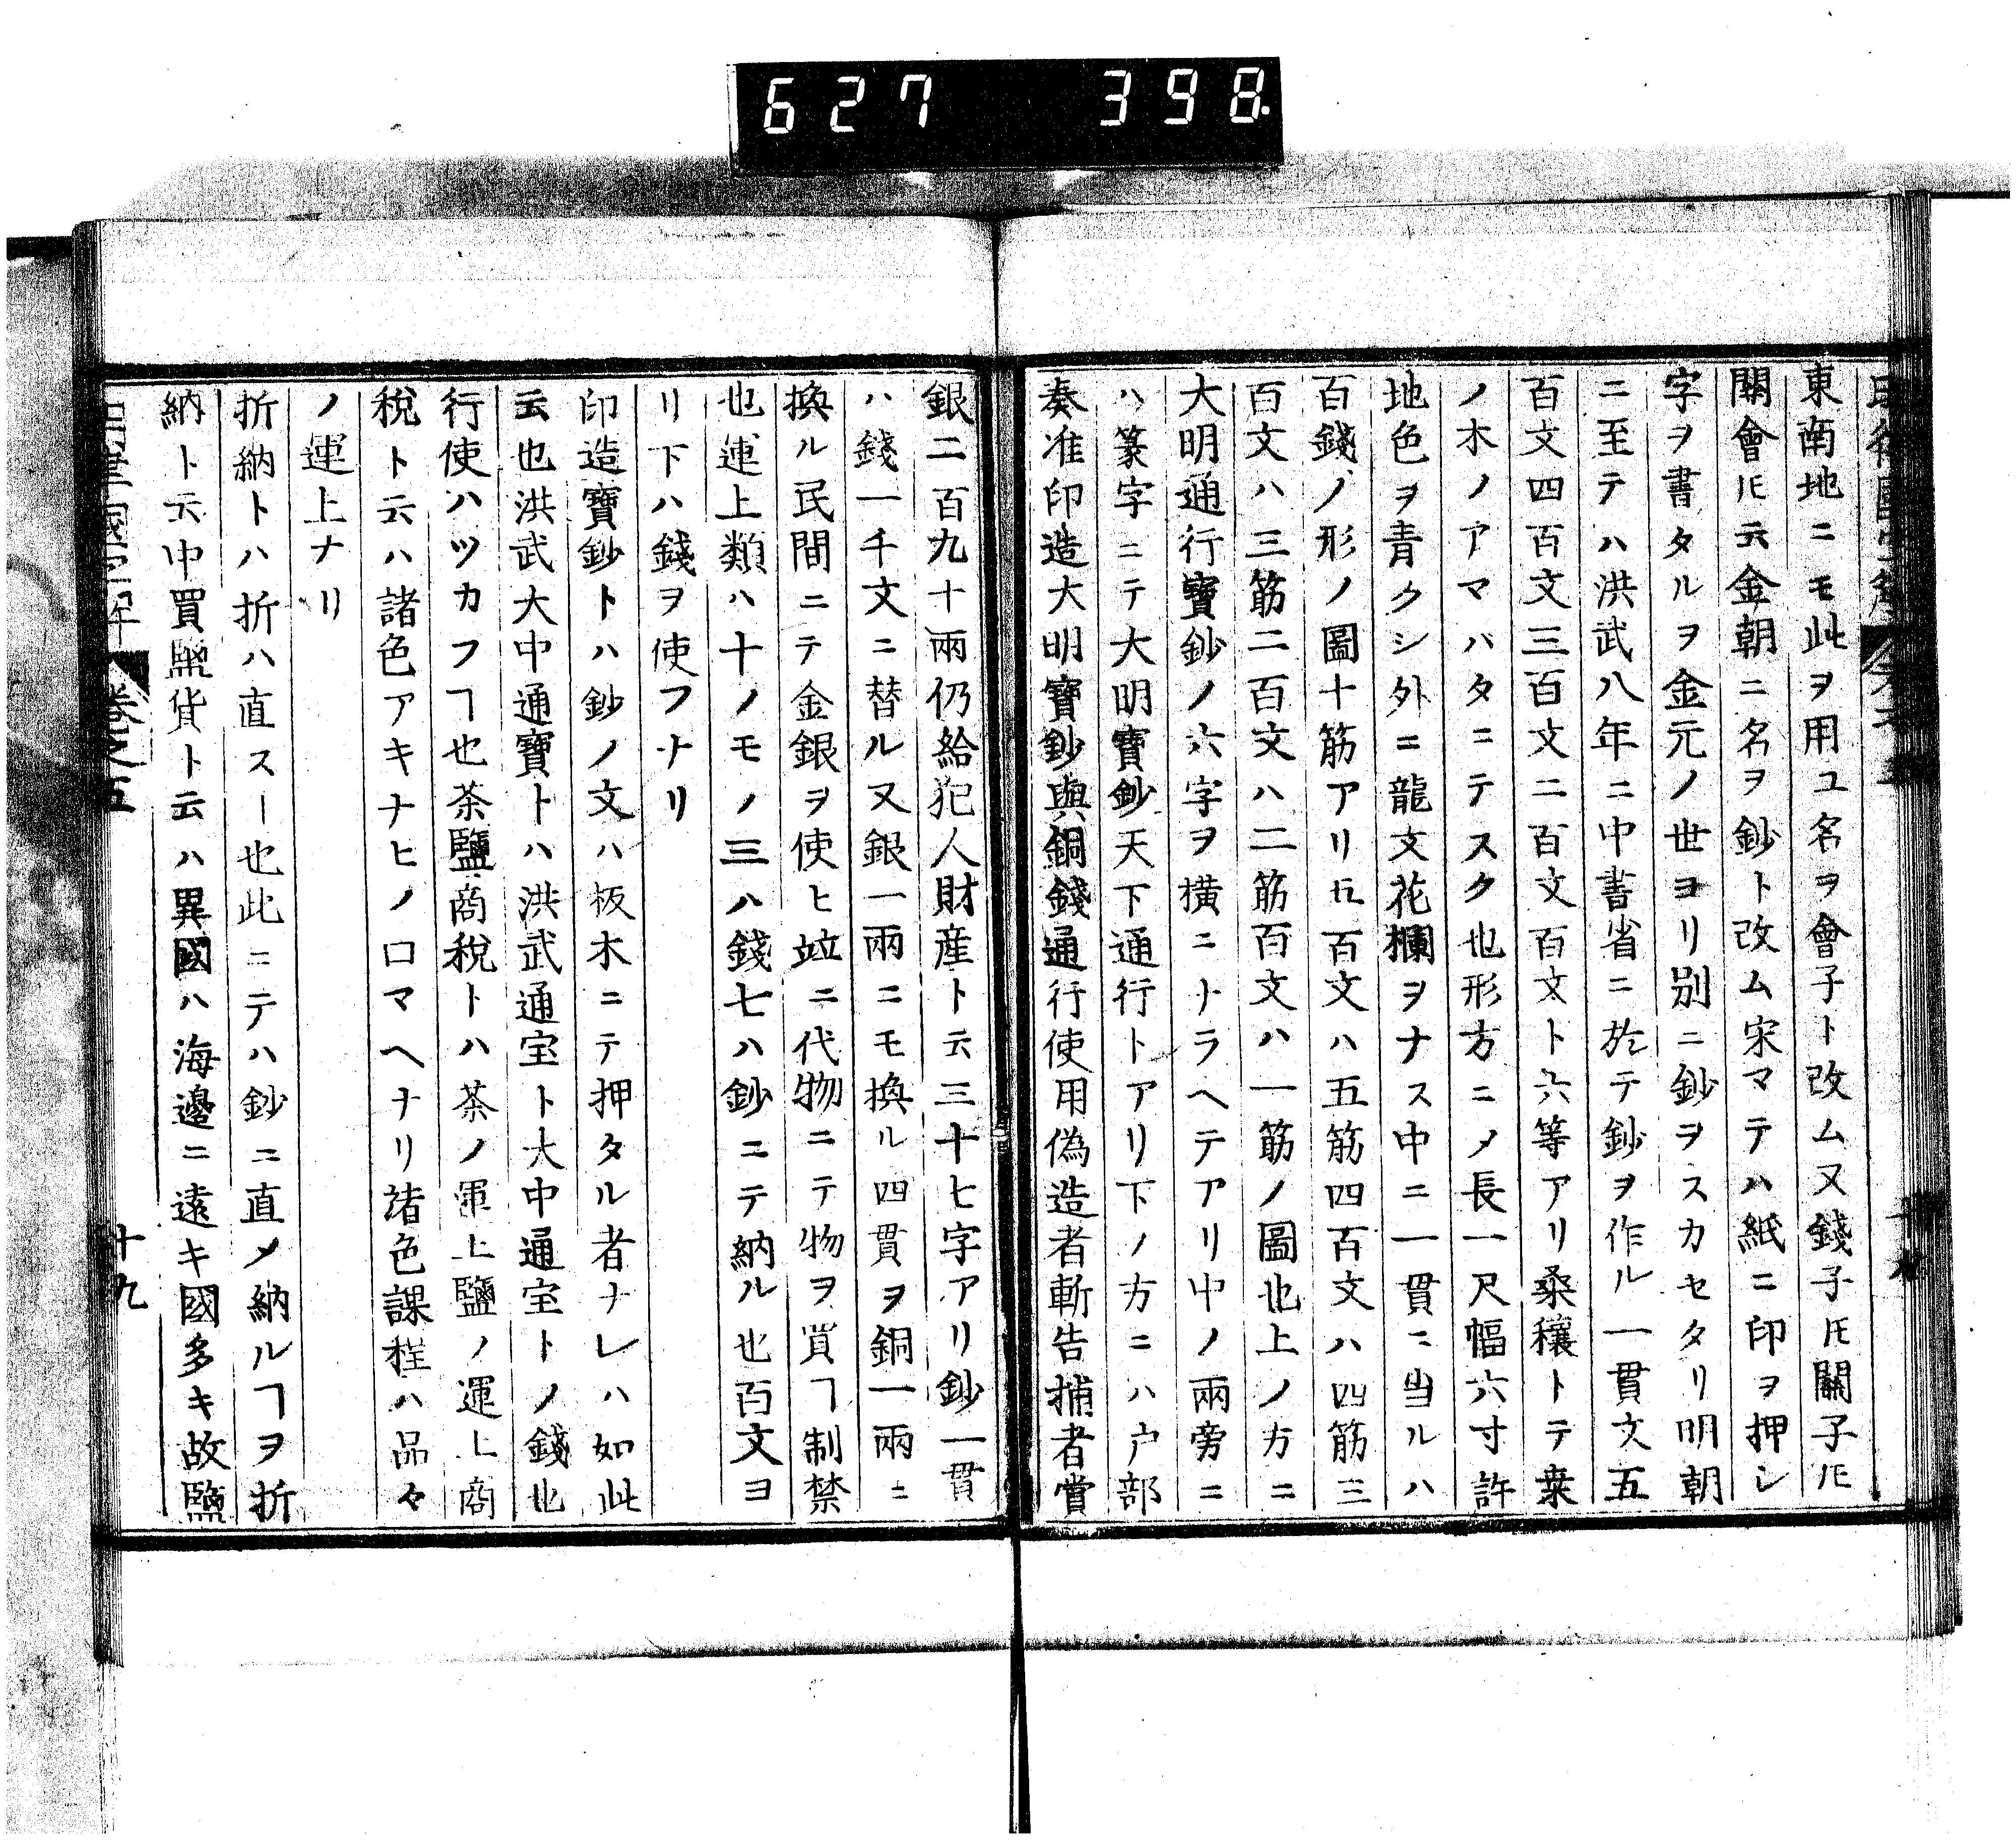 627 398
東南地ニモ此ヲ用ユ名ヲ會子ト改ム又錢子𪜈關子𪜈
關會𪜈云金朝ニ名ヲ鈔ト改ム宋マテハ紙ニ印ヲ押シ
字ヲ書タルヲ金元ノ世ヨリ別ニ鈔ヲスカセタリ明朝
ニ至テハ洪武八年ニ中書省ニ於テ鈔ヲ作ル一貫文五
百文四百文三百文二百文百文ト六等アリ桑穰トテ桒
ノ木ノアマハタニテスク也形方ニノ長一尺幅六寸許
地色ヲ青クシ外ニ龍文花欄ヲナス中ニ一貫ニ当ルハ
百錢ノ形ノ圖十筋アリ𪜈百文ハ五筋四百文ハ四筋三
百文ハ三筋二百文ハ二筋百文ハ一筋ノ圖也上ノ方ニ
大明通行寶鈔ノ六字ヲ橫ニナラヘテアリ中ノ兩旁ニ
ハ篆字ニテ大明寶鈔天下通行トアリ下ノ方ニハ户部
奏准印造大明寶鈔與銅錢通行使用偽造者斬告捕者賞
銀二百九十兩仍給犯人財産ト云三十七字アリ鈔一貫
ハ錢一千文ニ替ル又銀一兩ニモ換ル四貫ヲ銅一兩ニ
換ル民間ニテ金銀ヲ使ヒ竝ニ代物ニテ物ヲ買ヿ制禁
也運上類ハ十ノモノ三ハ錢七ハ鈔ニテ納ル也百文ヨ
リ下ハ錢ヲ使フナリ
印造寶鈔トハ鈔ノ文ハ板木ニテ押タル者ナレハ如此
云也洪武大中通寶トハ洪武通宝ト大中通宝トノ錢也
行使ハツカフヿ也茶鹽商稅トハ茶ノ運上鹽ノ運上商
稅ト云ハ諸色アキナヒノ口マヘナリ諸色課程ハ品々
ノ運上ナリ
折納トハ折ハ直スー也此ニテハ鈔ニ直ノ納ルヿヲ折
納ト云中買鹽貨ト云ハ異國ハ海邊ニ遠キ國多キ故鹽
卷之五
十九